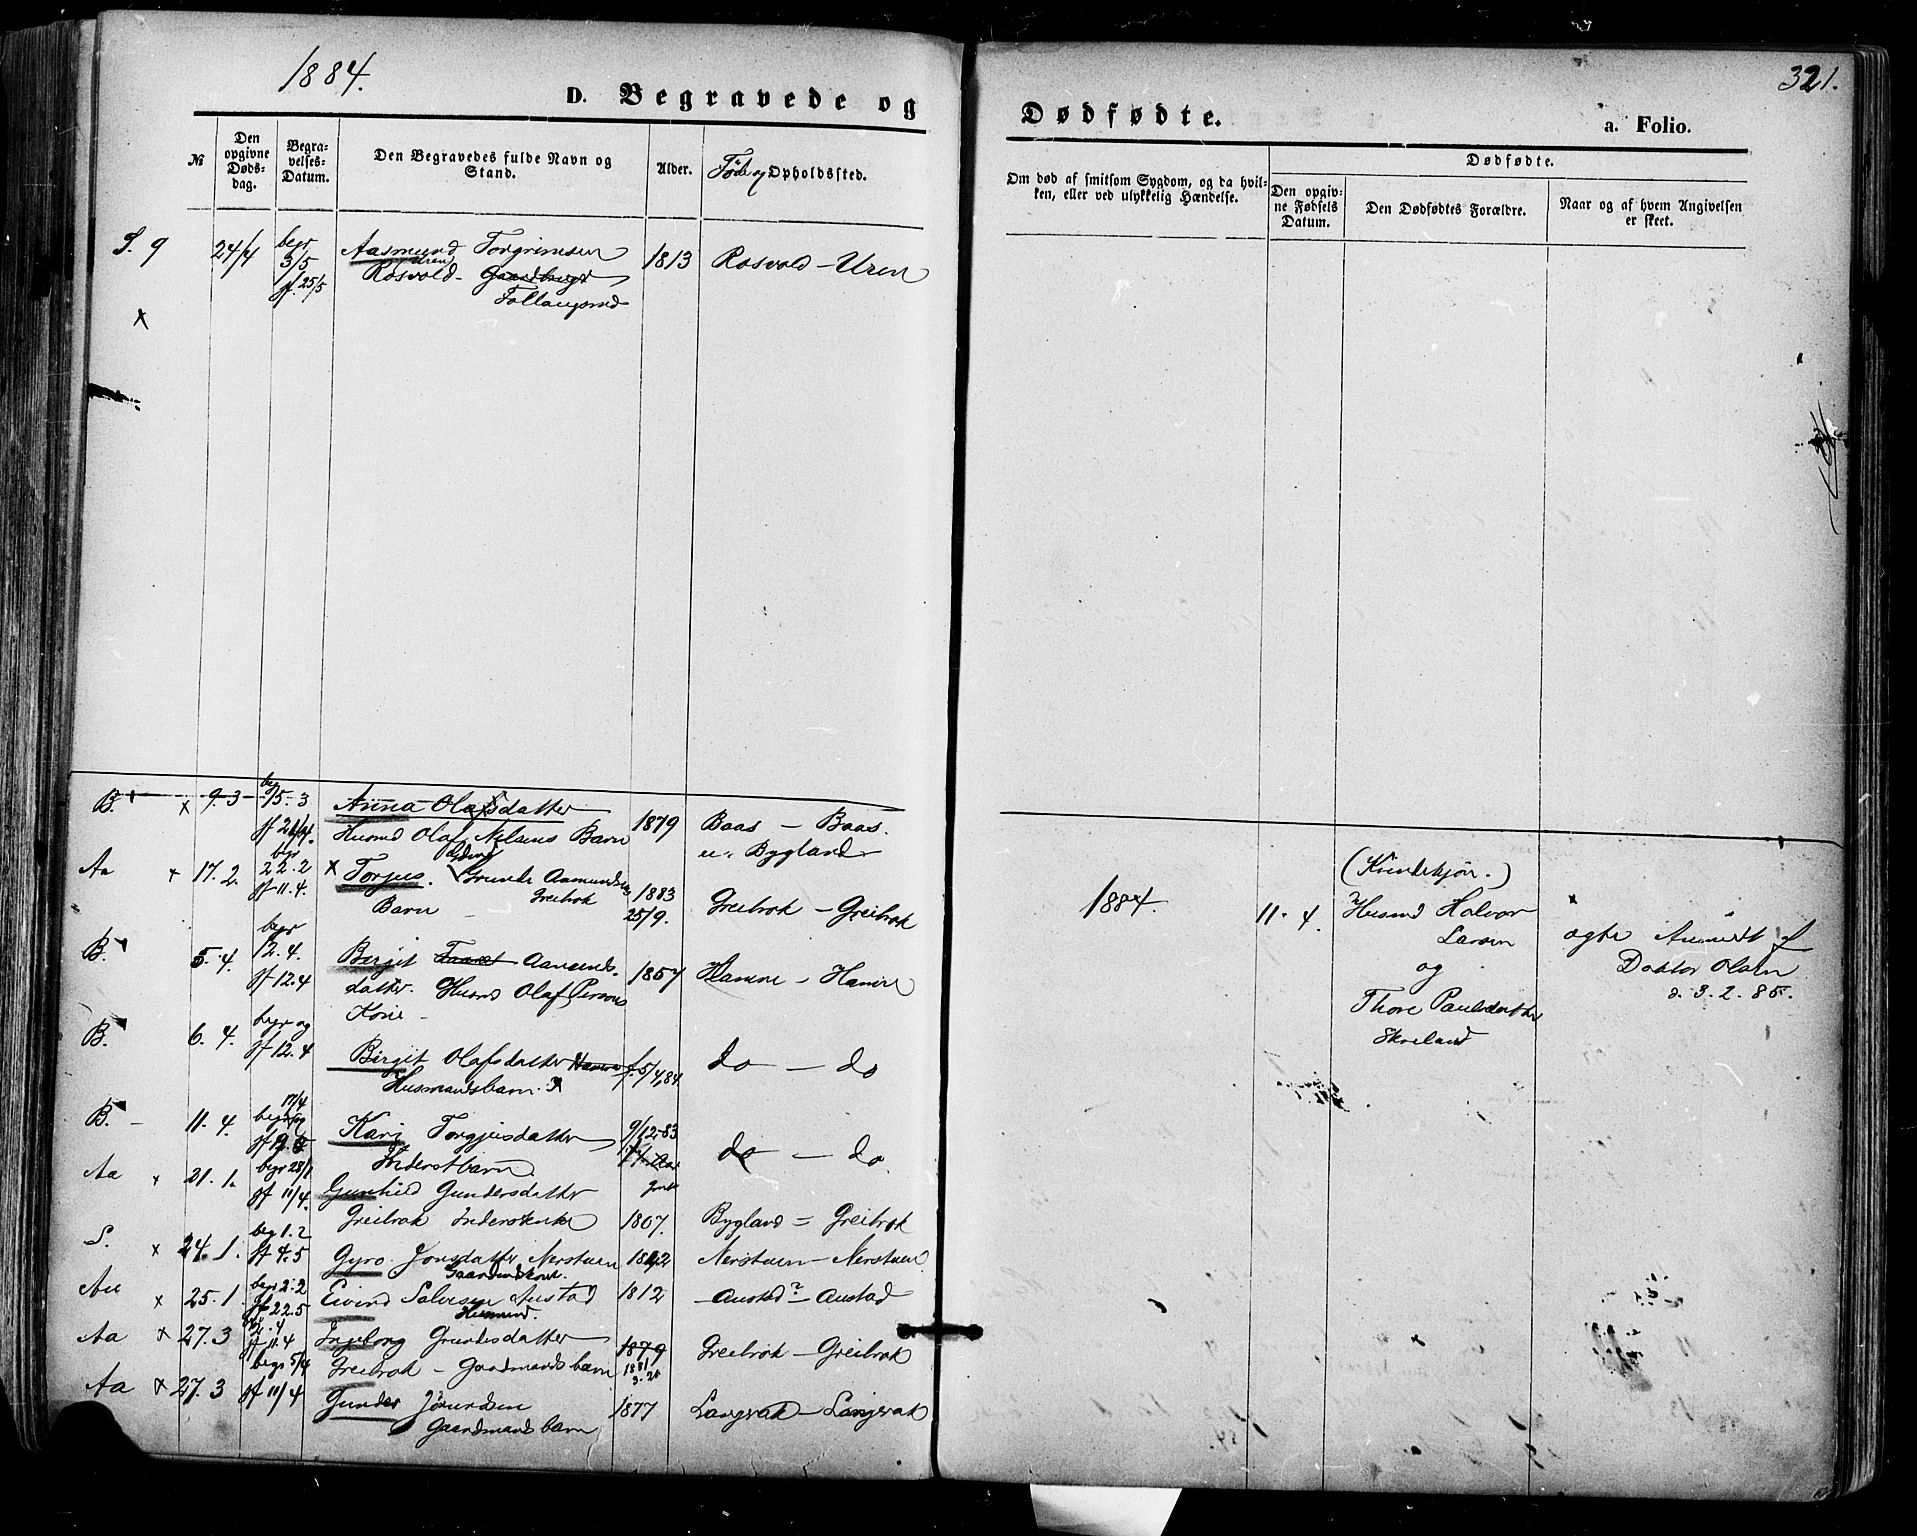 1884.
D. Begravede og
№
Den opgivne Døds-dag.
Begra-velses-Datum.
Den Begravedes fulde Navn og Stand.
Alder.
Føde og Opholdssted.
S. 9 24/4 begr 3/5 jf. 25/5 Aasmund Torgrimsen 1813 Rosvold - Uren
(Uren)
Rosvold - Gaardbrugr
B. x 9.3 begr 15.3 Anna Olafsdatter
jf 21/4. Husmd Olaf Nilsens Barn 1879 Baas - Baas.
Bygland
Aa x 17.2. begr 22.2 jf 11.4. x Torjus. Grunde Aamundsens
Greibrok
Barn 1883 25/9. Greibrok - Greibrok
B. 5.4. begr 12.4. jf 12.4 Birgit Aanunds-
datter. Husmd Olaf Persons 1857 Hamre - Hamre
Kone -
B. 6.4. begr og jf 12.4 Birgit Olafsdatter Hamre f. 5/4,84 do - do
Husmandsbarn.
B. - 11.4. 17/4 begr og Kari Torgjusdatter 9/12-83 do - do
Inderstbarn
Aa x 21.1. begr 28/1 jf 11/4. Gunhild Gundersdatter
Greibrok Inderstenke 1807. Bygland = Greibrok
S. x 24.1. begr 1.2 jf 4.5 Gyro Jonsdatter Nerstuen Nerstuen - Nerstuen
Gaardmdskone.
Au x 25.1. begr 2.2 jf 22.5 Eivind Salvesen Austad 1812 Austad ? - Austad
Husmand.
Aa x 27.3 jf 11.4 Ingeborg Grundesdatter 1879
Greibrok - Gaardmands barn 1881 Greibrok - Greibrok
Aa x 27.3 begr 5/4 jf 11/4 Gunder Jørundsen 1877 Langerak - Langerak
Gaardmandsbarn
Dødfødte.
321.
a. Folio.
Om død af smitsom Sygdom, og da hvil-
ken, eller ved ulykkelig Hændelse.
Dødfødte.
Den opgiv-
ne Fødsels
Datum.
Den Dødfødtes Forældre.
Naar og af hvem Angivelsen
er skeet.
1884. 11.4.
(Kvindekjøn.)
Husmd Halvor
Larsen
og
Thore Paulsdatter
Skreland
x
ægte Anmeldt af
Doktor Olsen
d. 3.2.85.